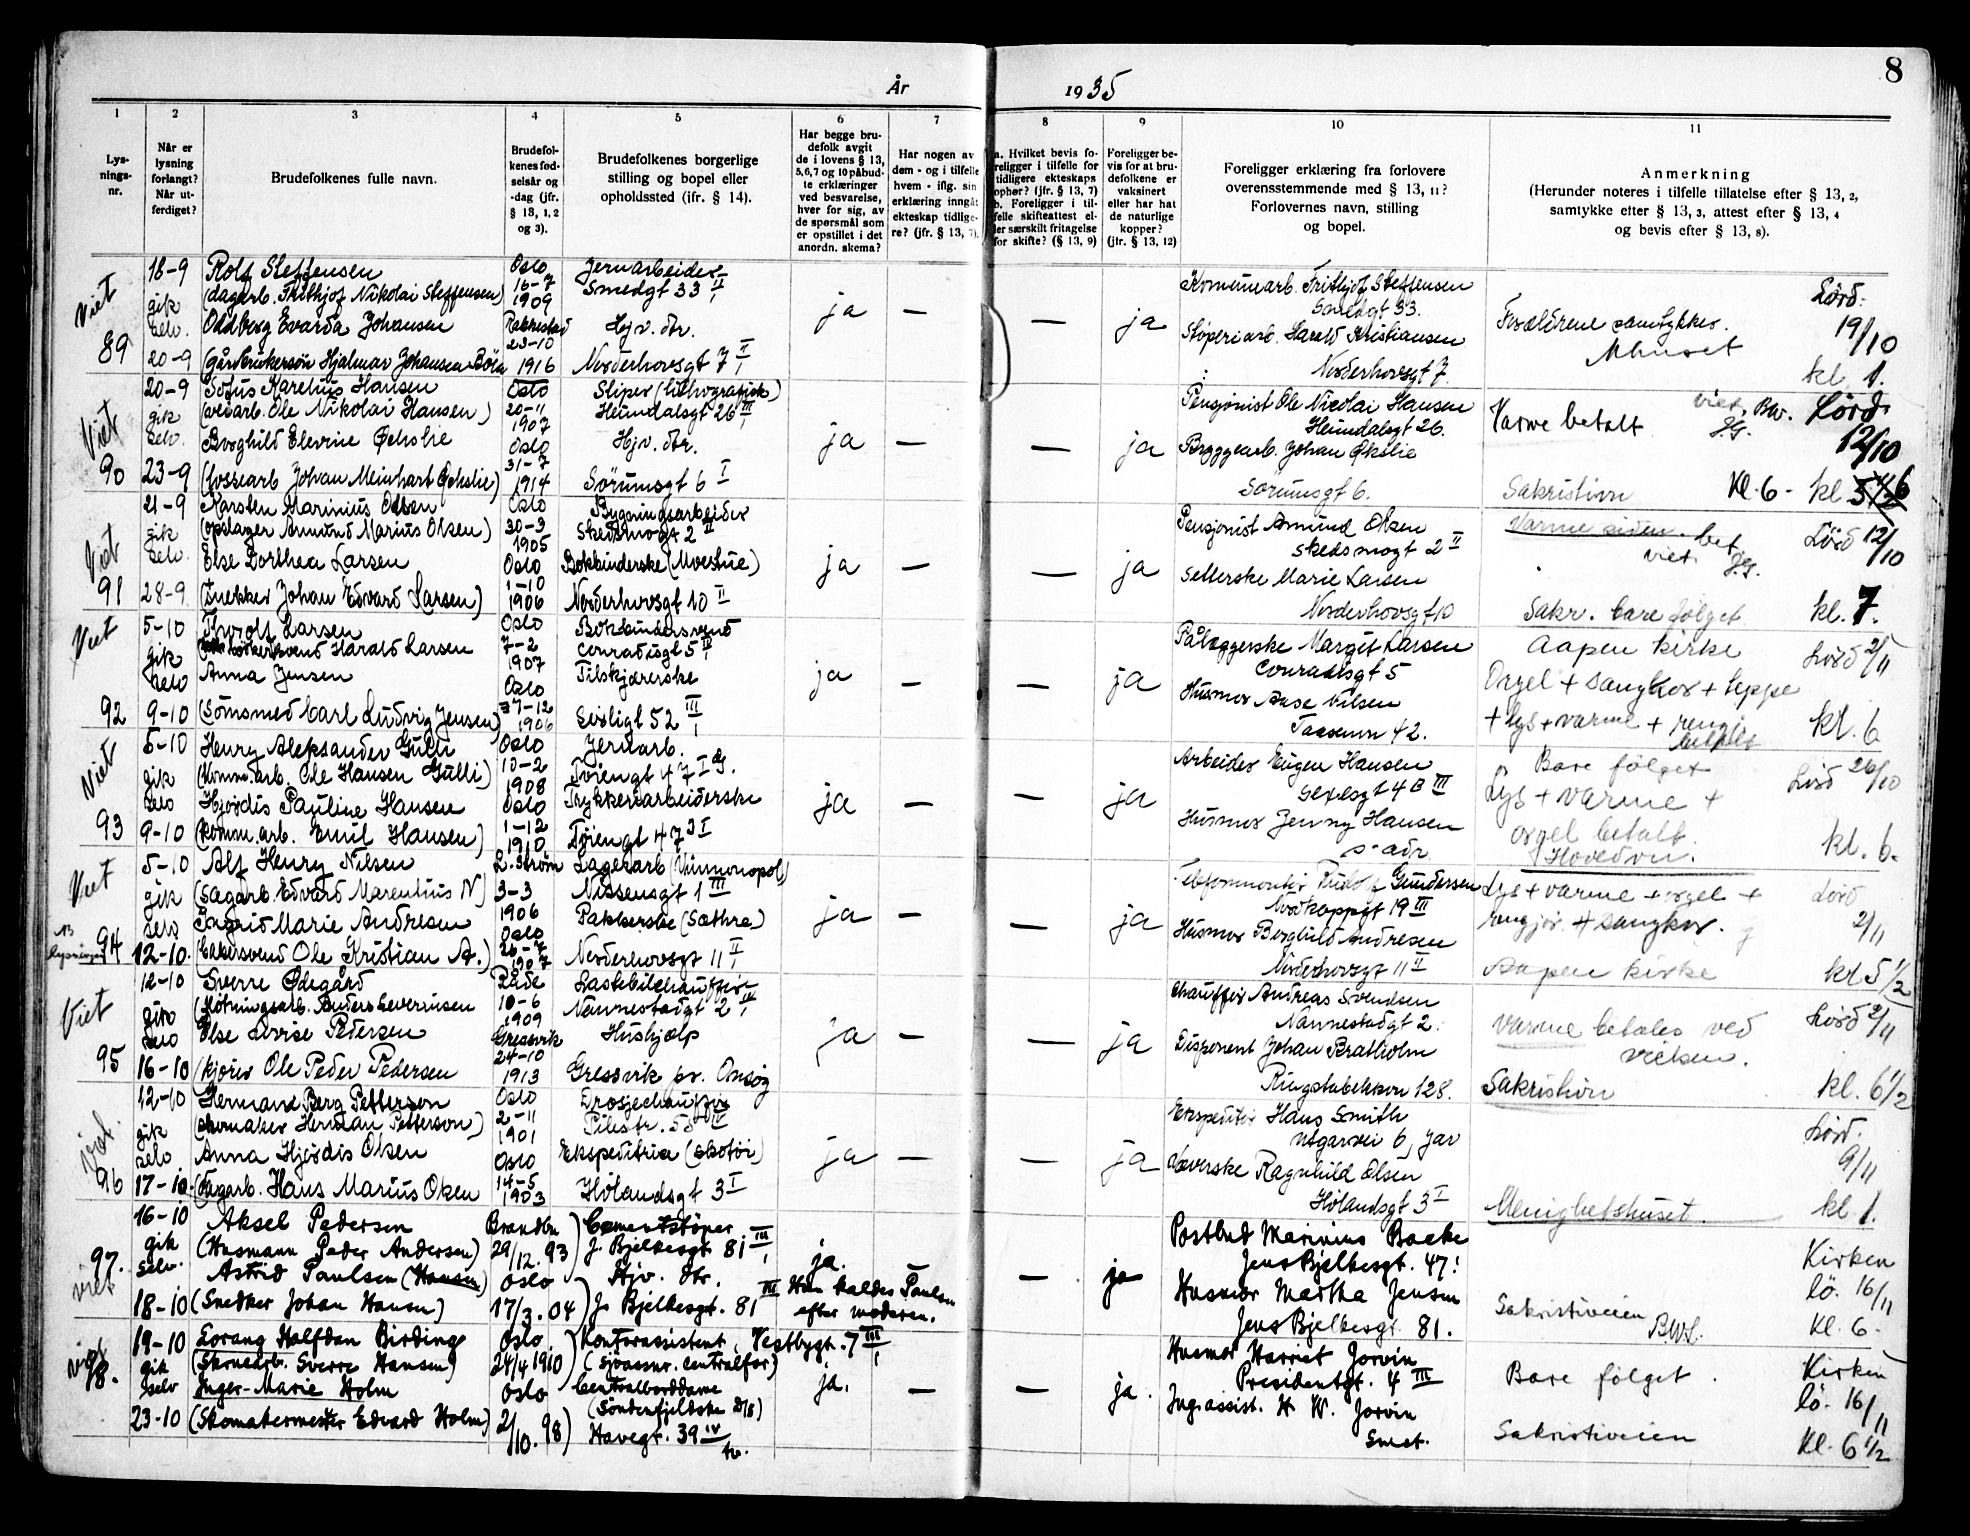 8
År 1935
1 2 3 4 5 6 7 8 9 10 11
Lys-
nings-
nr.
Når er
lysning
forlangt?
Når ut-
ferdiget?
Brudefolkenes fulle navn.
Brudefol-
kenes fød-
selsår og
-dag (jfr.
§ 13, 1, 2
og 3).
Brudefolkenes borgerlige
stilling og bopel eller
opholdssted (ifr. § 14).
Har begge bru-
defolk avgit
de i lovens § 13,
5, 6, 7 og 10 påbud-
te erklæringer
ved besvarelse,
hver for sig, av
de spørsmål som
er opstillet i det
anordn. skema?
Har nogen av
dem - og i tilfelle
hvem - iflg. sin
erklæring inngåt
ekteskap tidlige-
re? (jfr. § 13, 7).
a. Hvilket bevis fo-
religger i tilfelle for
tidligere ekteskaps
ophør? (jfr. § 13, 7)
b. Foreligger i til-
felle skifteattest el-
ler særskilt fritagelse
for skifte? (§ 13, 9)
Foreligger be-
vis for at bru-
defolkene er
vaksinert
eller har hat
de naturlige
kopper?
(jfr. § 13, 12)
Foreligger erklæring fra forlovere
overensstemmende med § 13, 11?
Forlovernes navn, stilling
og bopel.
Anmerkning
(Herunder noteres i tilfelle tillatelse efter § 13, 2,
samtykke efter § 13, 3, attest efter § 13, 4
og bevis efter § 13, 8).
Viet
89
18-9
gik
selv.
20-9
Rolf Steffensen
(dagarb. Frithjof Nikolai Steffensen)
Oddberg Evarda Johansen
(gårdbrukersøn Hjalmar Johansen
Oslo
16-7
1909
Rakkestad
23-10
1916
Jernarbeider
Smedgt 33 II
Hjv. dtr.
Norderhovsgt 7 II
ja — — ja
Kommunearb. Frithjof Steffensen
Smedgt 33.
Støperiarb. Harald Kristiansen
Norderhovsgt 7.
Foreldrene samtykker.
Lörd.
19/10
kl. 1.
Viet
90
20-9
gik
selv.
23-9
Sofus Karelius Hansen
(vedarb. Ole Nikolai Hansen)
Borghild Elevine Økslie
(fossearb Johan Meinhart Økslie)
Oslo
20-11
1907
Oslo
31-7
1914
Sliper (lithografisk)
Heimdalsgt 26 III
Hjv. dtr.
Sörumsgt 6 I
ja — — ja
Pensjonist Ole Nicolai Hansen
Heimdalsgt 26.
Bryggearb. Johan Økslie
Sorumsgt 6.
Varme betalt
viet. BW.
Sakristien Kl. 6 -
Lörd
12/10
kl 6
Viet
91
21-9
gik
selv.
28-9
Karsten Marinius Olsen
(opslager Amund Marius Olsen)
Else Dorthea Larsen
(snekker Johan Edvard Larsen)
Oslo
30-3
1905
Oslo
1-10
1906
Bygningsarbeider
Skedsmogt 2 II
Bokbinderske (Moestue)
Norderhovsgt 10 II
ja — — ja
Pensjonist Amund Olsen
Skedsmogt 2 II
Selterske Marie Larsen
Norderhovsgt 10
Varme siden. bet
viet.
Sakr. bare følget
Lörd 12/10
kl. 7.
Viet
92
5-10
gik
selv
9-10
Thorolf Larsen
Harald Larsen
Anna Jensen
(Sömsmed Carl Ludvig Jensen)
Oslo
7-2
1907
Oslo
27-12
1906
Bokbindersvend
Conradisgt 5 IV
Tilskjærerske
Eiriksgt 52 III
ja — — ja
Pålæggerske Margit Larsen
Conradisgt 5
Husmor Aase Nilsen
Taasenvn 42.
Aapen kirke
Orgel + sangkor + teppe
+ lys + varme + rengj
betalt
Lörd 2/11
kl. 6
Viet
93
5-10
gik
selv
9-10
Henry Aleksander Gulli
(komm.arb. Ole Hansen Gulli)
Hjørdis Pauline Hansen
(komm.arb. Emil Hansen)
Oslo
10-2
1908
Oslo
1-12
1910
Jernarb.
Tøiengt 47 I
Trykkeriarbeiderske
Tøiengt 47 I
ja — — ja
Arbeider Eugen Hansen
Sexesgt 4B III
Husmor Jenny Hansen
s. adr.
Bare følget
Lys + varme +
orgel betalt.
Hovedvn.
Lörd 26/10
kl. 6.
Viet
94
5-10
gik
selv
12-10.
Alf Henry Nilsen
(Sagarb. Edvard Marentius N)
Ingrid Marie Andresen
(bakersvend Ole Kristian A.)
L.strøm
3-3
1906
Oslo
26-7
1907
Lagerarb (Vinmonopol)
Nissensgt 1 III
Pakkerske (Sætre)
Norderhovsgt 11 II
ja — — ja
Telefonmontør Rudolf Gundersen
Nordkappgt 19 III
Husmor Borghild Andresen
Norderhovsgt 11 II
Lys + varme + orgel +
rengjør. + sangkor.
Aapen kirke
Lörd
2/11
kl 5 1/2
Viet
95
12-10
gik
selv
16-10
Sverre Ødegård
Anders Severinsen
Else Lovise Pedersen
(kjører Ole Peder Pedersen
Råde
10-6
1909
Gressvik
24-10
1913
Lastebilchauffør
Nannestadgt 2 IV
Hushjælp
Gressvik pr. Onsøy
ja — — ja
Chauffør Andreas Svendsen
Nannestadgt 2.
Disponent Johan Bratholm
Ringstabekkvn 128.
Varme betales ved
vielsen.
Sakristien
Lörd 2/11
kl. 6 1/2
Viet.
96
12-10
gik
selv
17-10.
Hermand Berg Petterson
(skomaker Herman Petterson)
Anna Hjørdis Olsen
(dagarb. Hans Marius Olsen
Oslo
2-11
1901
Oslo
14-5
1903
Drosjechauffør
Pilestr. 55 IV
Ekspeditrice (skotøi)
Hölandsgt 3 I
ja — — ja
Ekspeditør Hans Smith
Utgarvei 6, Jar
Væverske Ragnhild Olsen
Hölandsgt 3 I
Menighetshuset.
Lörd.
9/11
kl 1.
97.
viet
16-10
gik
selv.
18-10
Aksel Pedersen
(Husmann Peder Andersen)
Astrid Paulsen (Hansen)
(Snedker Johan Hansen)
Brandbu
29/12. 93
Oslo
17/3. 04
Cementstøper
J. Bjelkesgt. 81 III
Hjv. dtr.
J. Bjelkesgt. 81 III
ja.
Hun kaldes Paulsen
efter moderen.
— — ja
Postbud Marinius Bakke
Jens Bjelkesgt. 47!
Husmor Martha Jensen
Jens Bjelkesgt 81.
Sakristiveien
BWS.
Kirken
lö. 16/11
Kl. 6-
viet
98.
19-10
gik
selv
23-10
Lorang Halfdan Birding
(Skruearb. Sverre Hansen)
Inger-Marie Holm
(Skomakermester Edvard Holm)
Oslo
24/4 1910
Oslo
2/10. 98
Kontorassistent, Vestbygt. 7 III
(Sjøassur. centralfor)
Centralborddame
(Søndenfjeldske D/S)
Havegt. 39 IV
tv.
ja. — — ja.
Husmor Harriet Jorvin
Presidentgt. 4 III
Ing. assist. H W. Jorvin
Smst.
Bare følget.
Sakristiveien
Kirken
lö. 16/11
Kl. 6 1/2